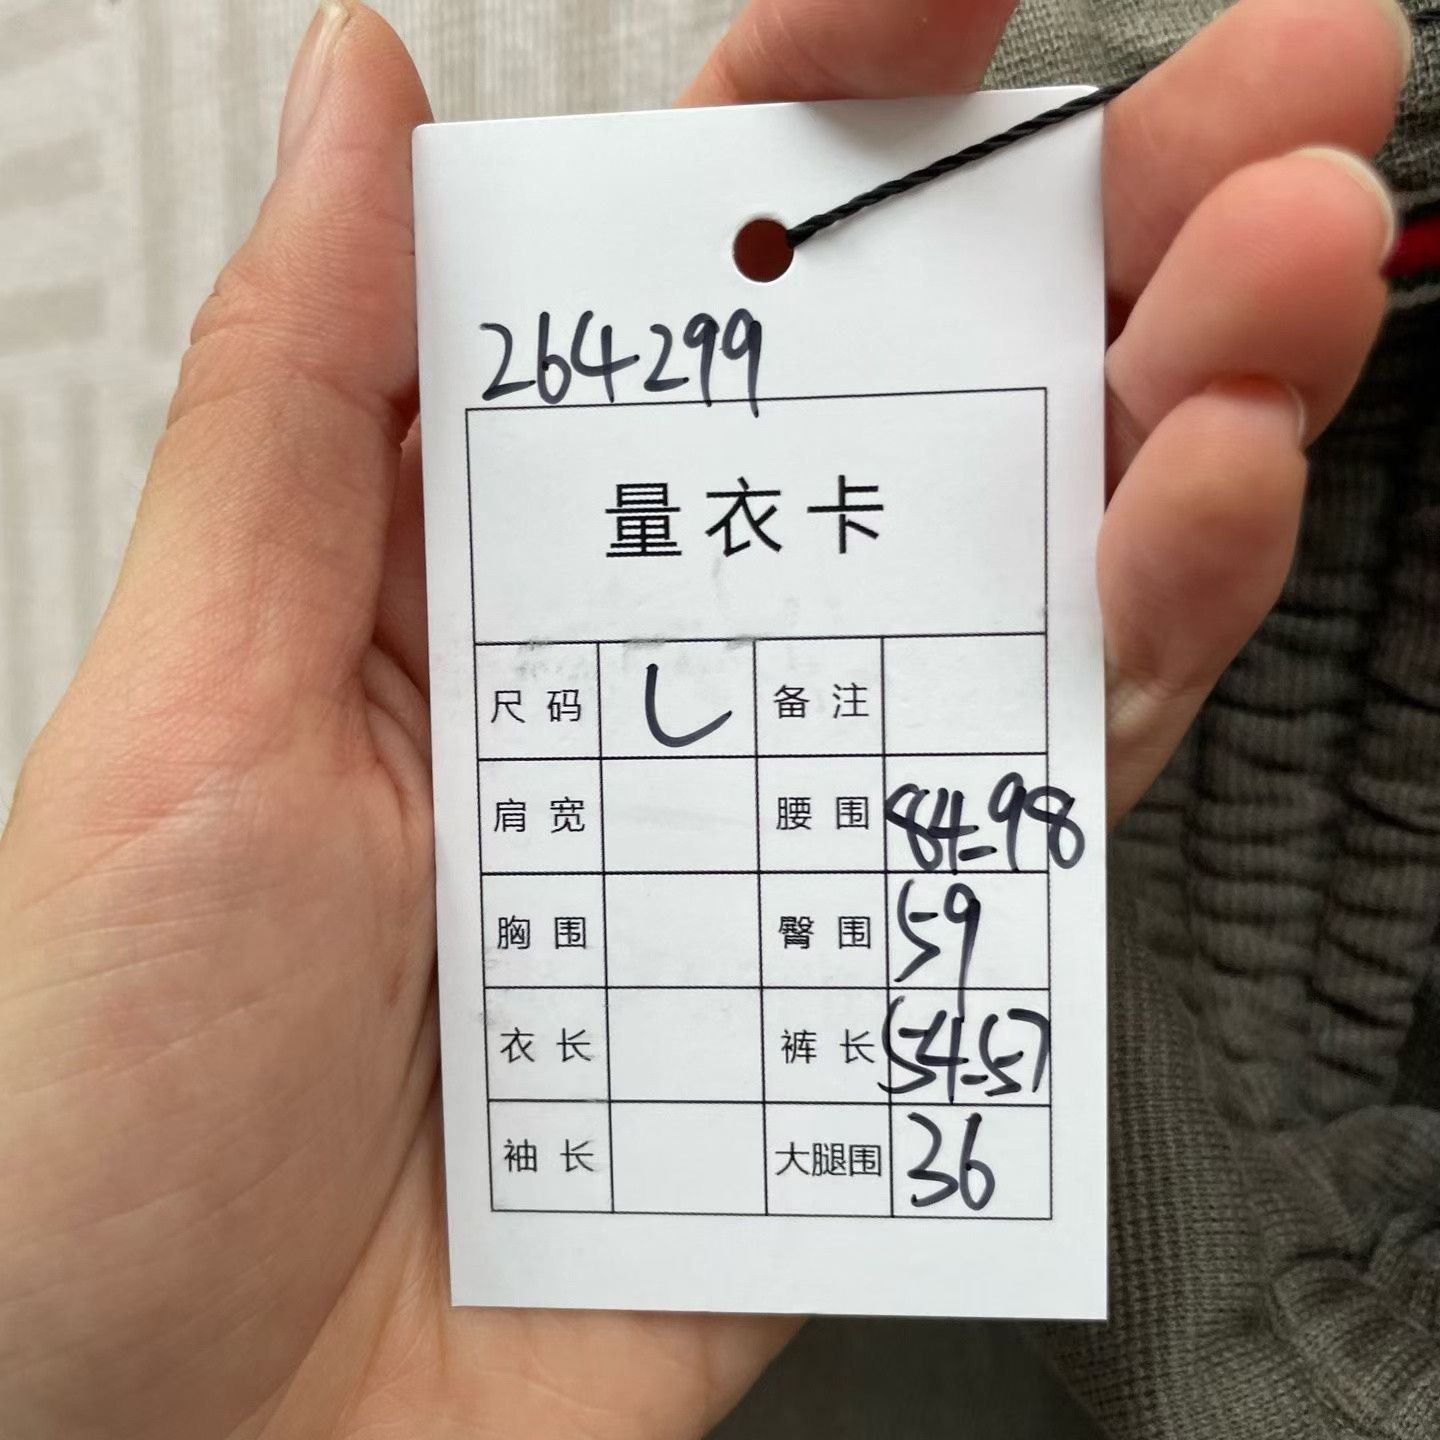 264299
量衣卡
尺码 L 备注
肩宽 腰围 84-98
胸围 臀围 59
衣长 裤长 54-57
袖长 大腿围 36